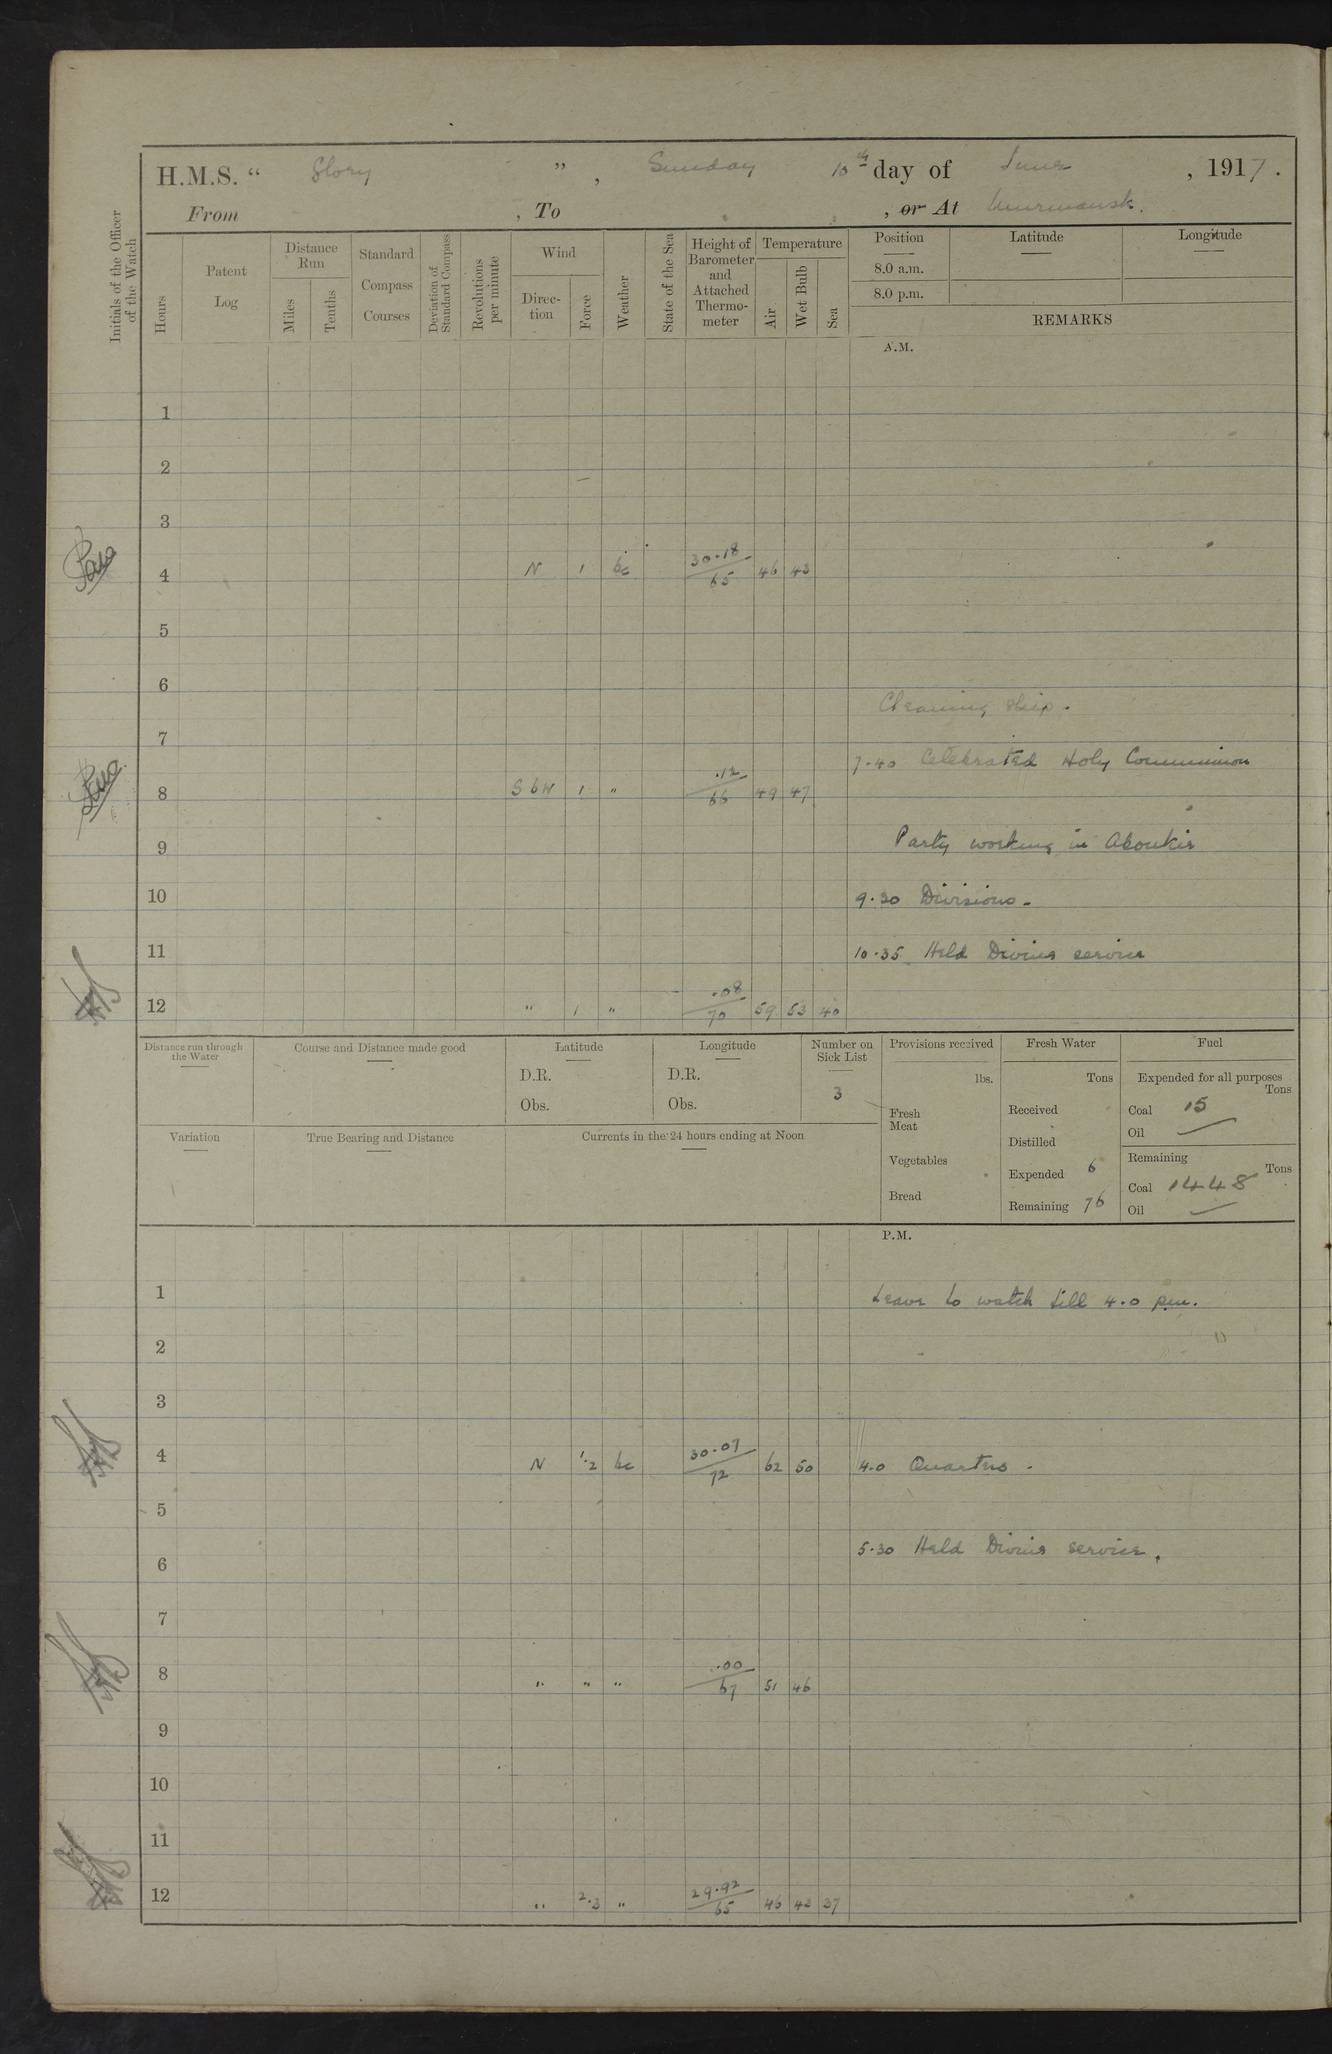 H.M.S. “ Glory ” , Sunday 10th day of June , 1917.
From , To , or At Murmansk.
Initials of the Officer of the Watch
Hours
Patent Log
Distance Run
Miles
Tenths
Standard Compass Courses
Deviation of Standard Compass
Revolutions per minute
Wind
Direc-tion
Force
Weather
State of the Sea
Height of Barometer and Attached Thermo-meter
Temperature
Air
Wet Bulb
Sea
Position Latitude Longitude
8.0 a.m.
8.0 p.m.
REMARKS
A.M.
1
2
3
4 N 1 bc 30.18/65 46 43
5
6
Cleaning ship.
7
7.40 Celebrated Holy Communion
8 S b W 1 " .12/66 49 47
9 Party working in Aboukir
10 9.30 Divisions.
11 10.35 Held Divine service
12 " 1 " .08/70 59 53 40
Distance run through the Water
Course and Distance made good
Latitude
D.R.
Obs.
Longitude
D.R.
Obs.
Number on Sick List
3
Variation
True Bearing and Distance
Currents in the 24 hours ending at Noon
Provisions received
lbs.
Fresh Meat
Vegetables
Bread
Fresh Water
Tons
Received
Distilled
Expended 6
Remaining 76
Fuel
Expended for all purposes
Tons
Coal 15
Oil —
Remaining
Tons
Coal 1448
Oil —
P.M.
1 Leave to watch till 4.0 pm.
2
3
4 N 1.2 bc 30.07/72 62 50 4.0 Quarters.
5
5.30 Held Divine service.
6
7
8 " " " .00/67 51 46
9
10
11
12 " 2.3 " 29.92/65 46 43 37